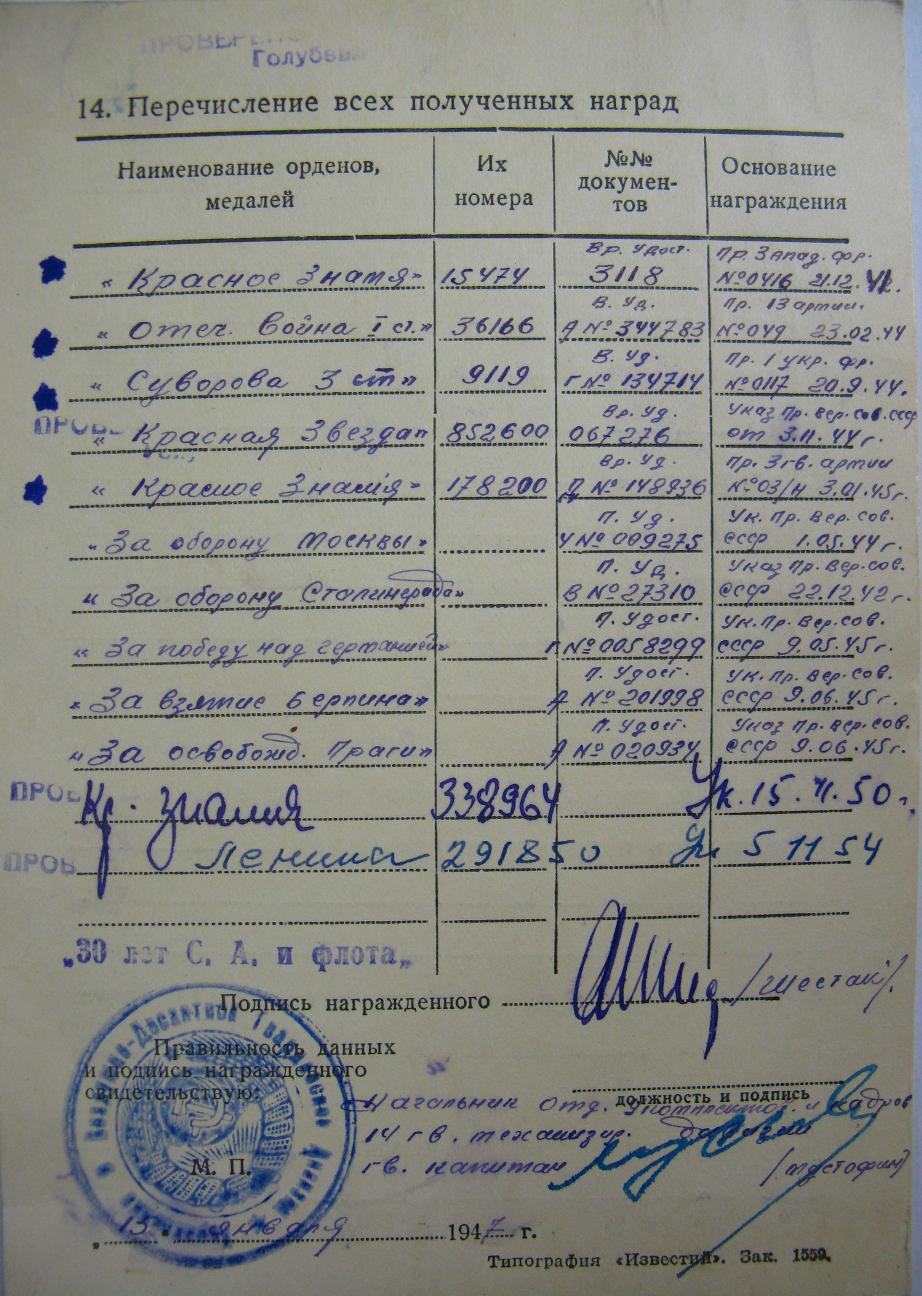 Голубева
14. Перечисление всех полученных наград
Наименование орденов, медалей
Их номера
№№ документов
Основание награждения
Вр. Удост. Пр. Запад. фр.
"Красное Знамя" 15474 3118 №0416 21.12.42.
В. Уд. Пр. 13 армии.
"Отеч. Война I ст." 36166 А №344783 №049 23.02.44
В. Уд. Пр. 1 укр. фр.
"Суворова 3 ст" 9119 Г №134714 №0117 20.9.44.
Вр. Уд. Указ Пр. Вер. Сов. СССР
"Красная Звезда" 852600 067276 от 3.11.44 г.
Вр. Уд. Пр. 3 гв. армии
"Красное Знамя" 178200 №148936 №03/н 3.01.45 г.
П. Уд. Ук. Пр. Вер. Сов.
"За оборону Москвы" У №009275 СССР 1.05.44 г.
П. Уд. Указ Пр. Вер. Сов.
"За оборону Сталинграда" В №27310 СССР 22.12.42 г.
П. Удост. Ук. Пр. Вер. Сов.
"За победу над Германией" Г №0058299 СССР 9.05.45 г.
П. Удост. Ук. Пр. Вер. Сов.
"За взятие Берлина" А №201998 СССР 9.06.45 г.
П. Удост. Указ Пр. Вер. Сов.
"За освобожд. Праги" А №020934 СССР 9.06.45 г.
ПРОВ
Кр. Знамя 338964 Ук. 15.11.50 г.
ПРОВ
Ленина 291850 Ук 5 11 54
„30 лет С. А. и флота„
Подпись награжденного /Шестак/.
Правильность данных
и подпись награжденного
свидетельствую:
должность и подпись
Начальник отд. и кадров
14 гв. механизир. дивизии
гв. капитан
М. П.
„15" января 1947 г.
Типография «Известий». Зак. 1559.